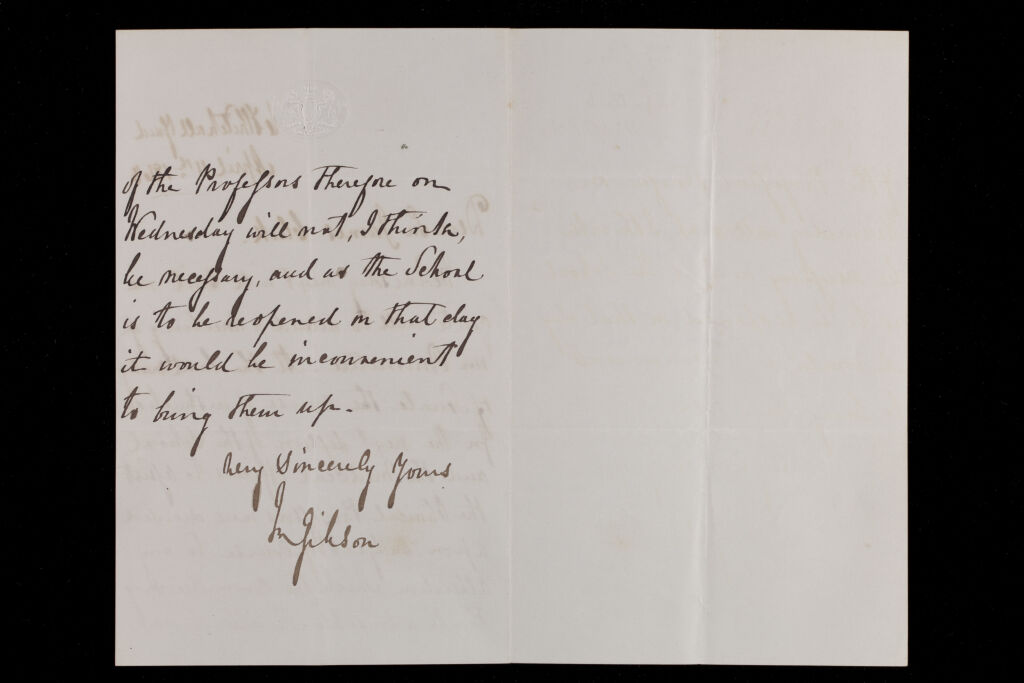 of the Professors therefore on
Wednesday will not, I think,
be necessary, and as the School
is to be reopened on that day
it would be inconvenient
to bring them up.
Very Sincerely Yours
Jn Gibson